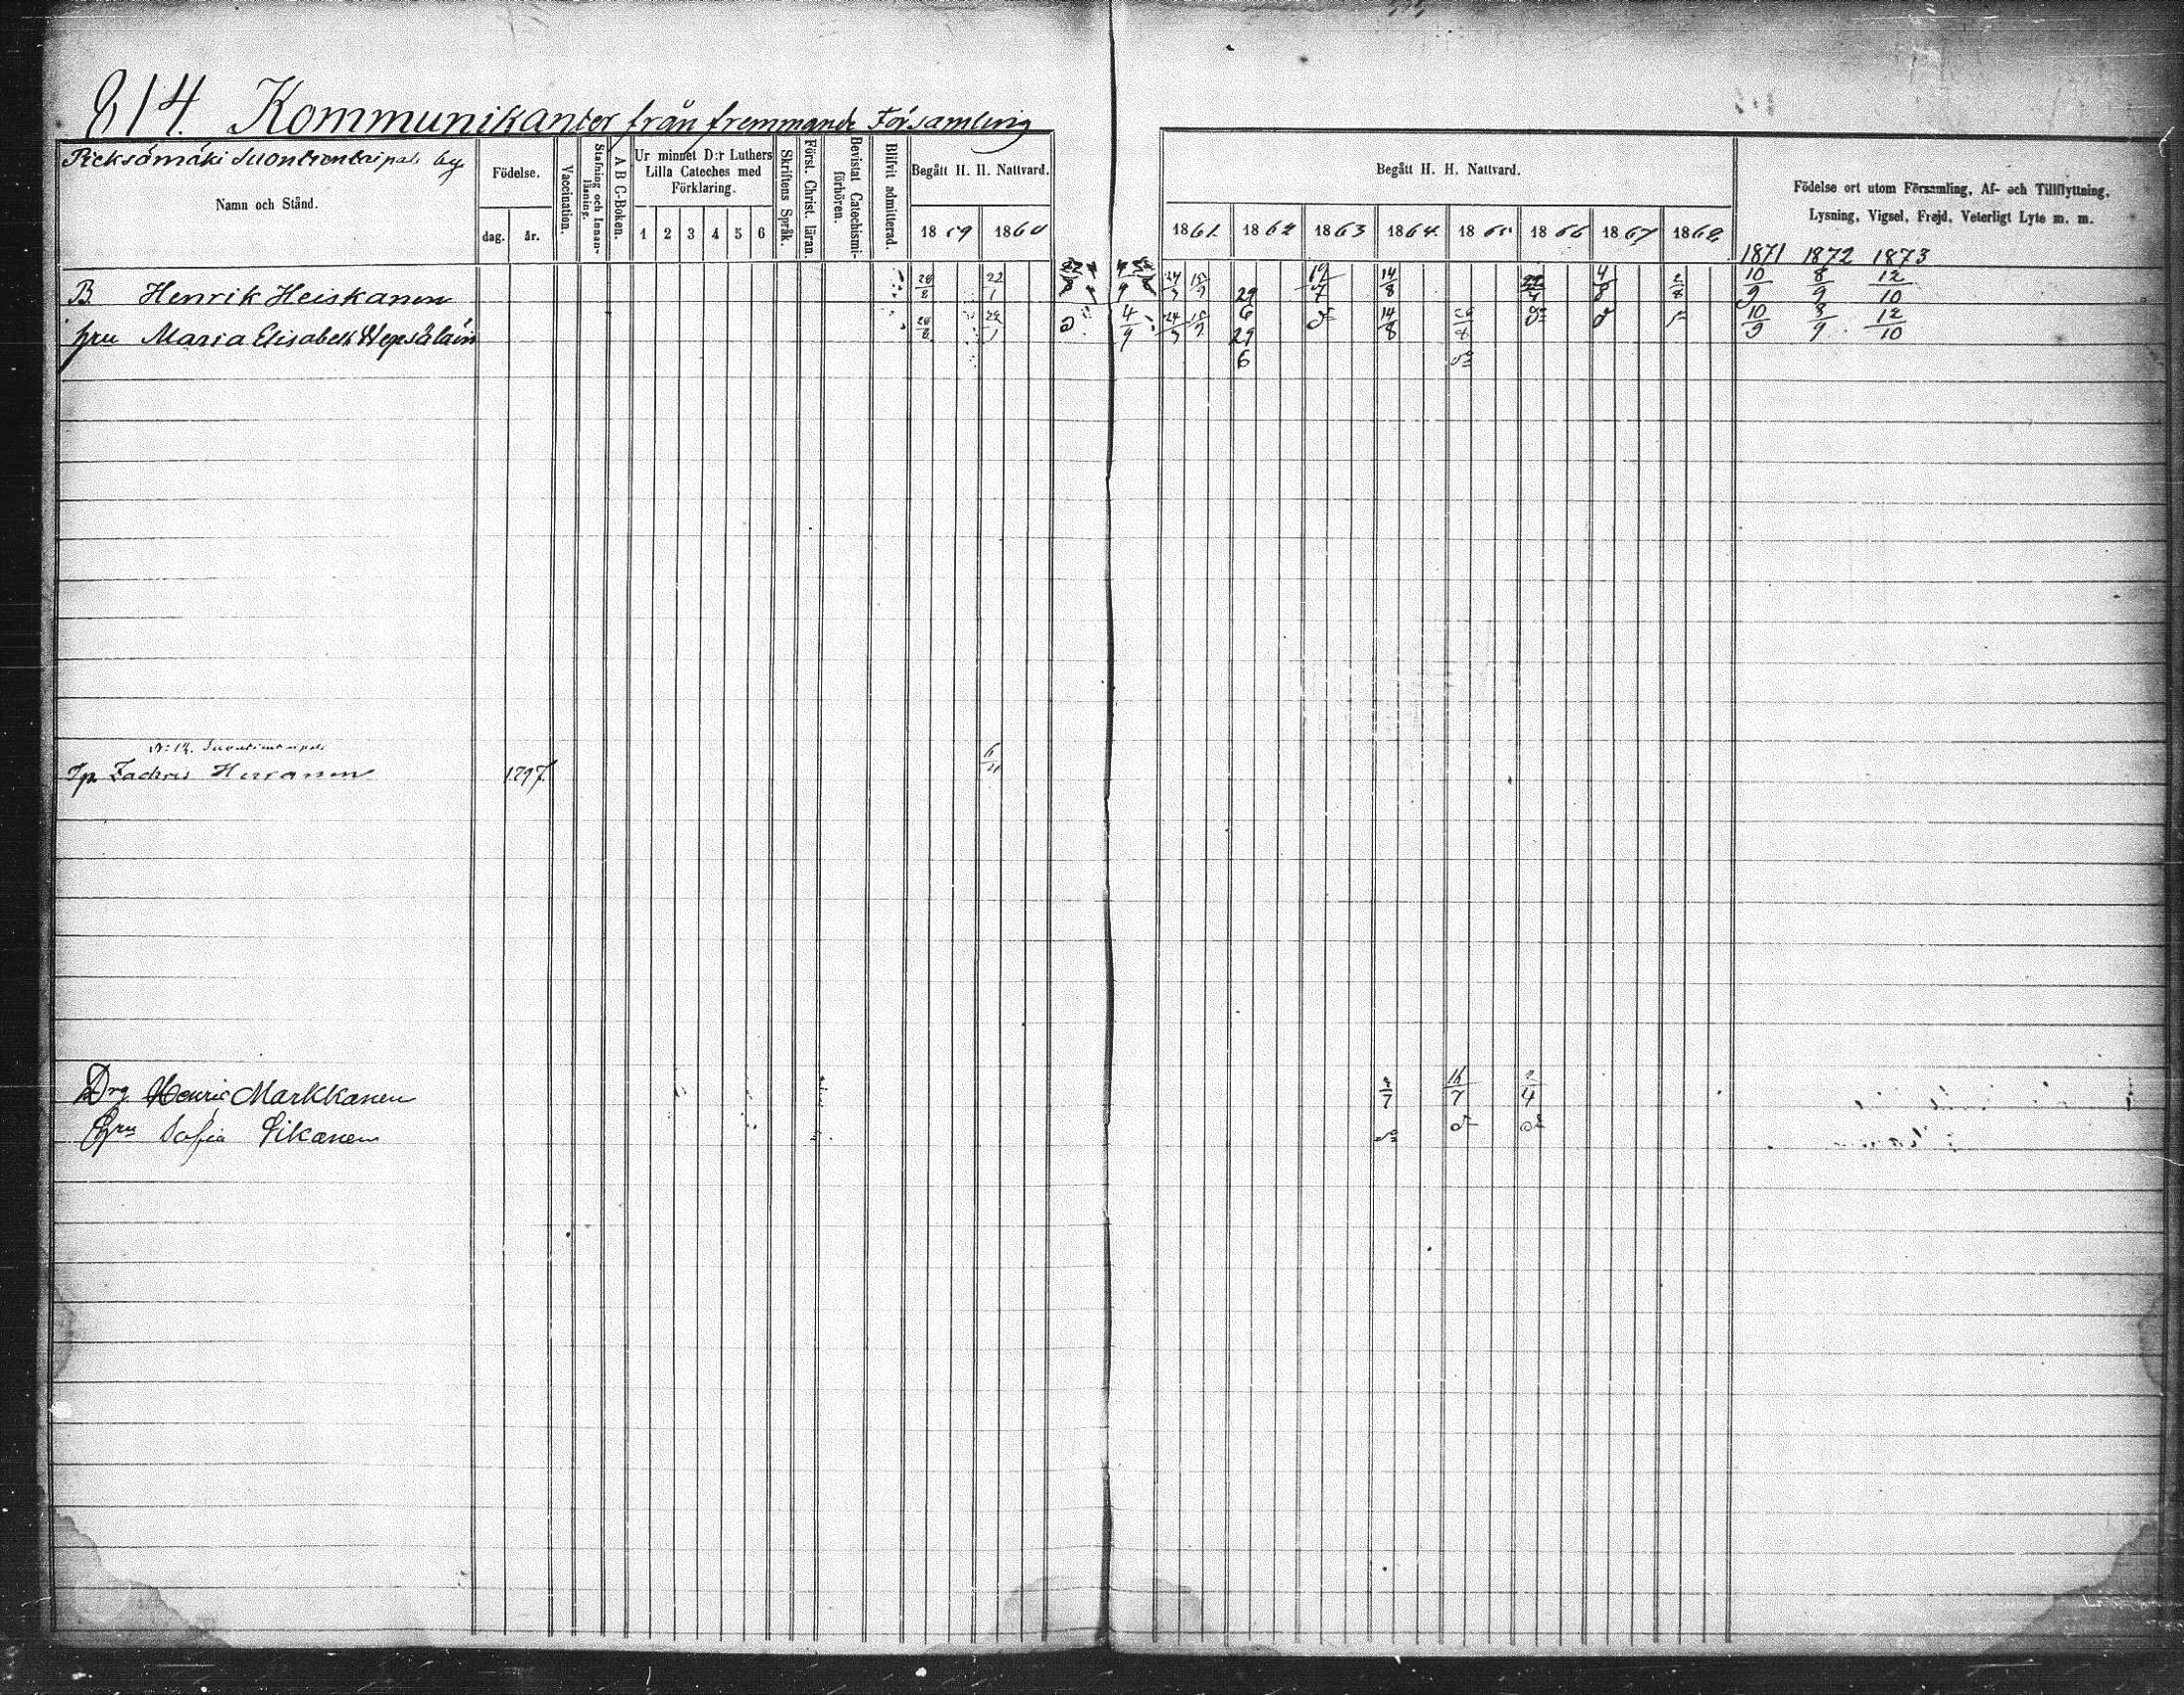 814. Kommunikanter från fremmande Församling
Pieksämäki Suontientaipale by
Namn och Stånd.
Födelse.
dag. år.
Vaccination.
Stafning och Innanläsning.
A B C-Boken.
Ur minnet D:r Luthers Lilla Cateches med Förklaring.
1 2 3 4 5 6
Skriftens Språk.
Först. Christ. läran.
Bevistat Catechismiförhören.
Blifvit admitterad.
Begått H. H. Nattvard.
1859 1860
Begått H. H. Nattvard.
1861 1862 1863 1864 1865 1866 1867 1868
Födelse ort utom Församling, Af- och Tillflyttning,
Lysning, Vigsel, Frejd, Veterligt Lyte m. m.
1871 1872 1873
B. Henrik Heiskanen 28/8 22/1 24/3 15/9 29/6 19/7 14/8 4/8 2/8 10/9 8/9 12/10
hru Maria Elisabeth 28/8 22/1 4/9 24/3 15/9 29/6 do 14/8 20/8 do do do 10/9 8/9 12/10
do
N:12. Suontientaipale
Zachris Herranen 1797
Drg Henric Markkanen 2/7 16/7 2/4
Hru Sofia Pikanen do do do